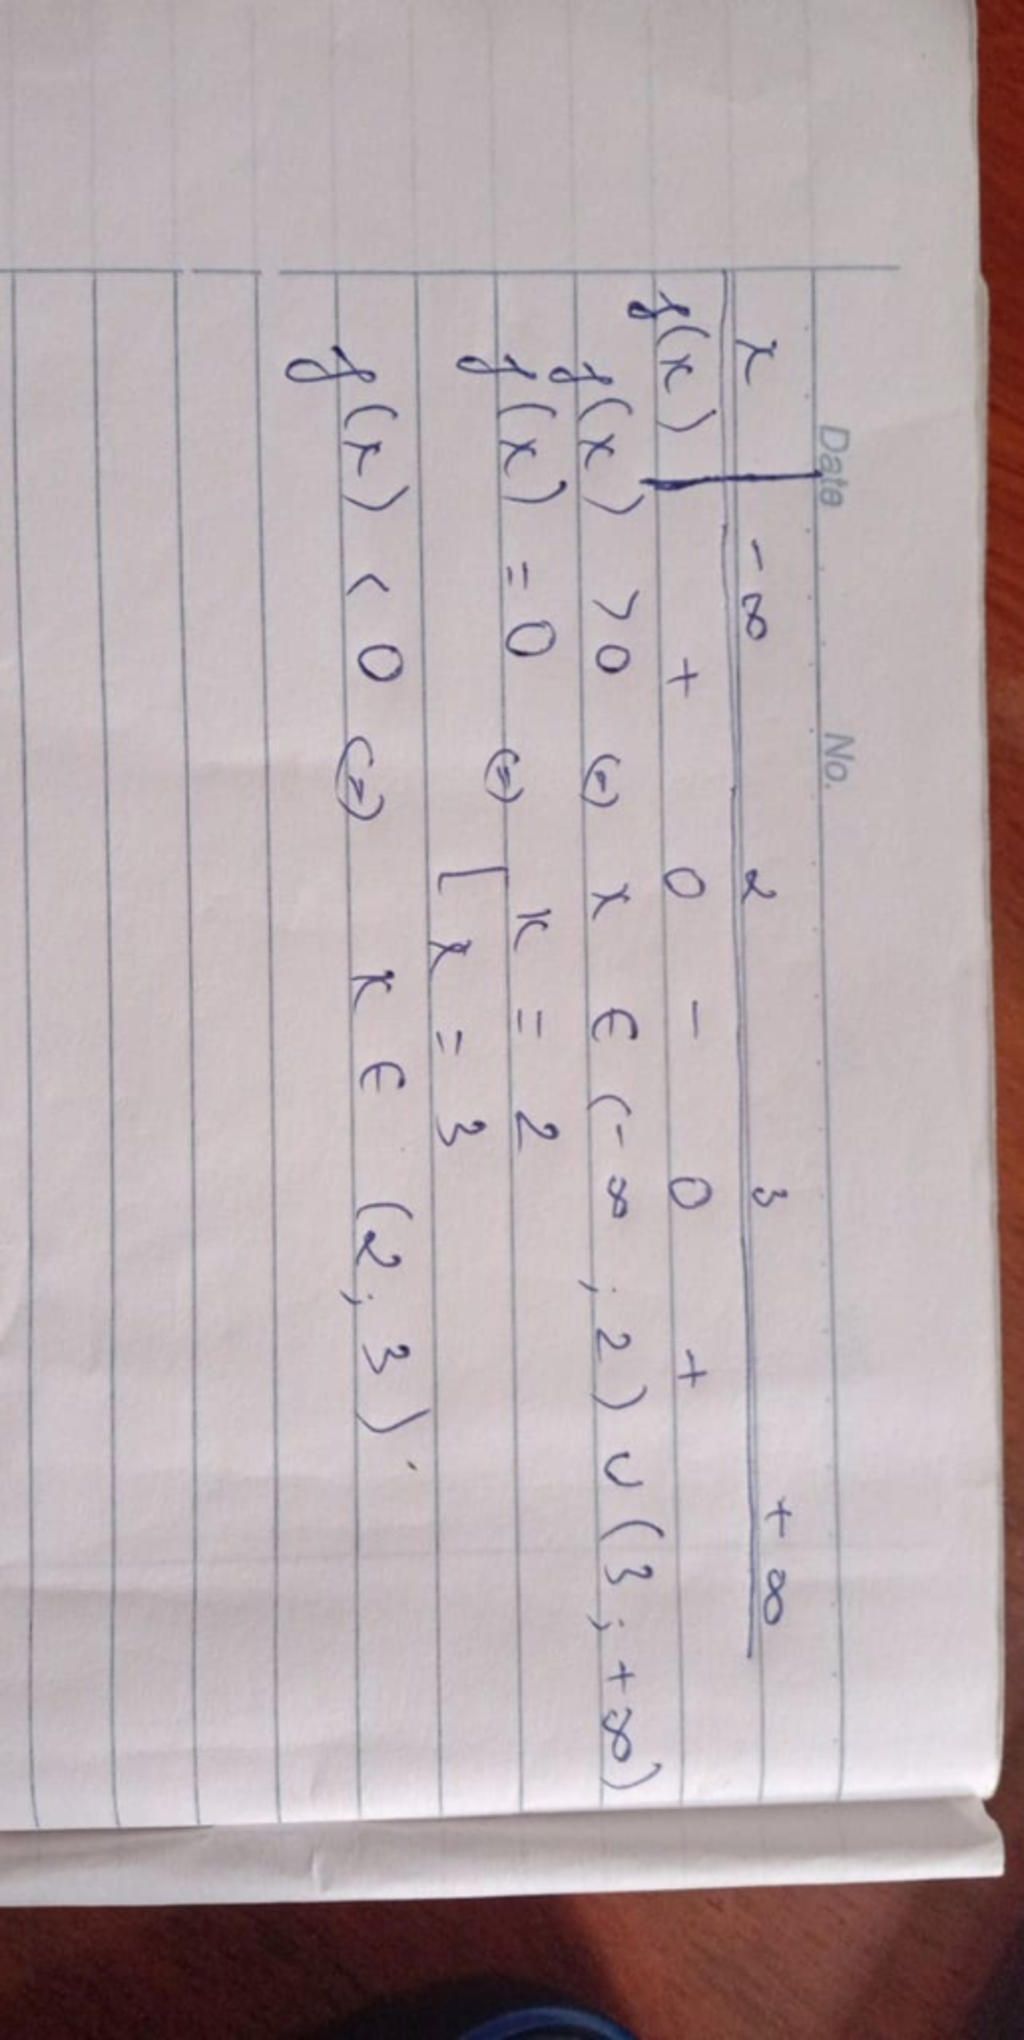 Date No.
x -∞ 2 3 +∞
f(x) + 0 - 0 +
f(x) > 0 (=) x ∈ (-∞; 2) ∪ (3; +∞)
f(x) = 0 (=) [ x = 2
x = 3
f(x) < 0 (=) x ∈ (2; 3).